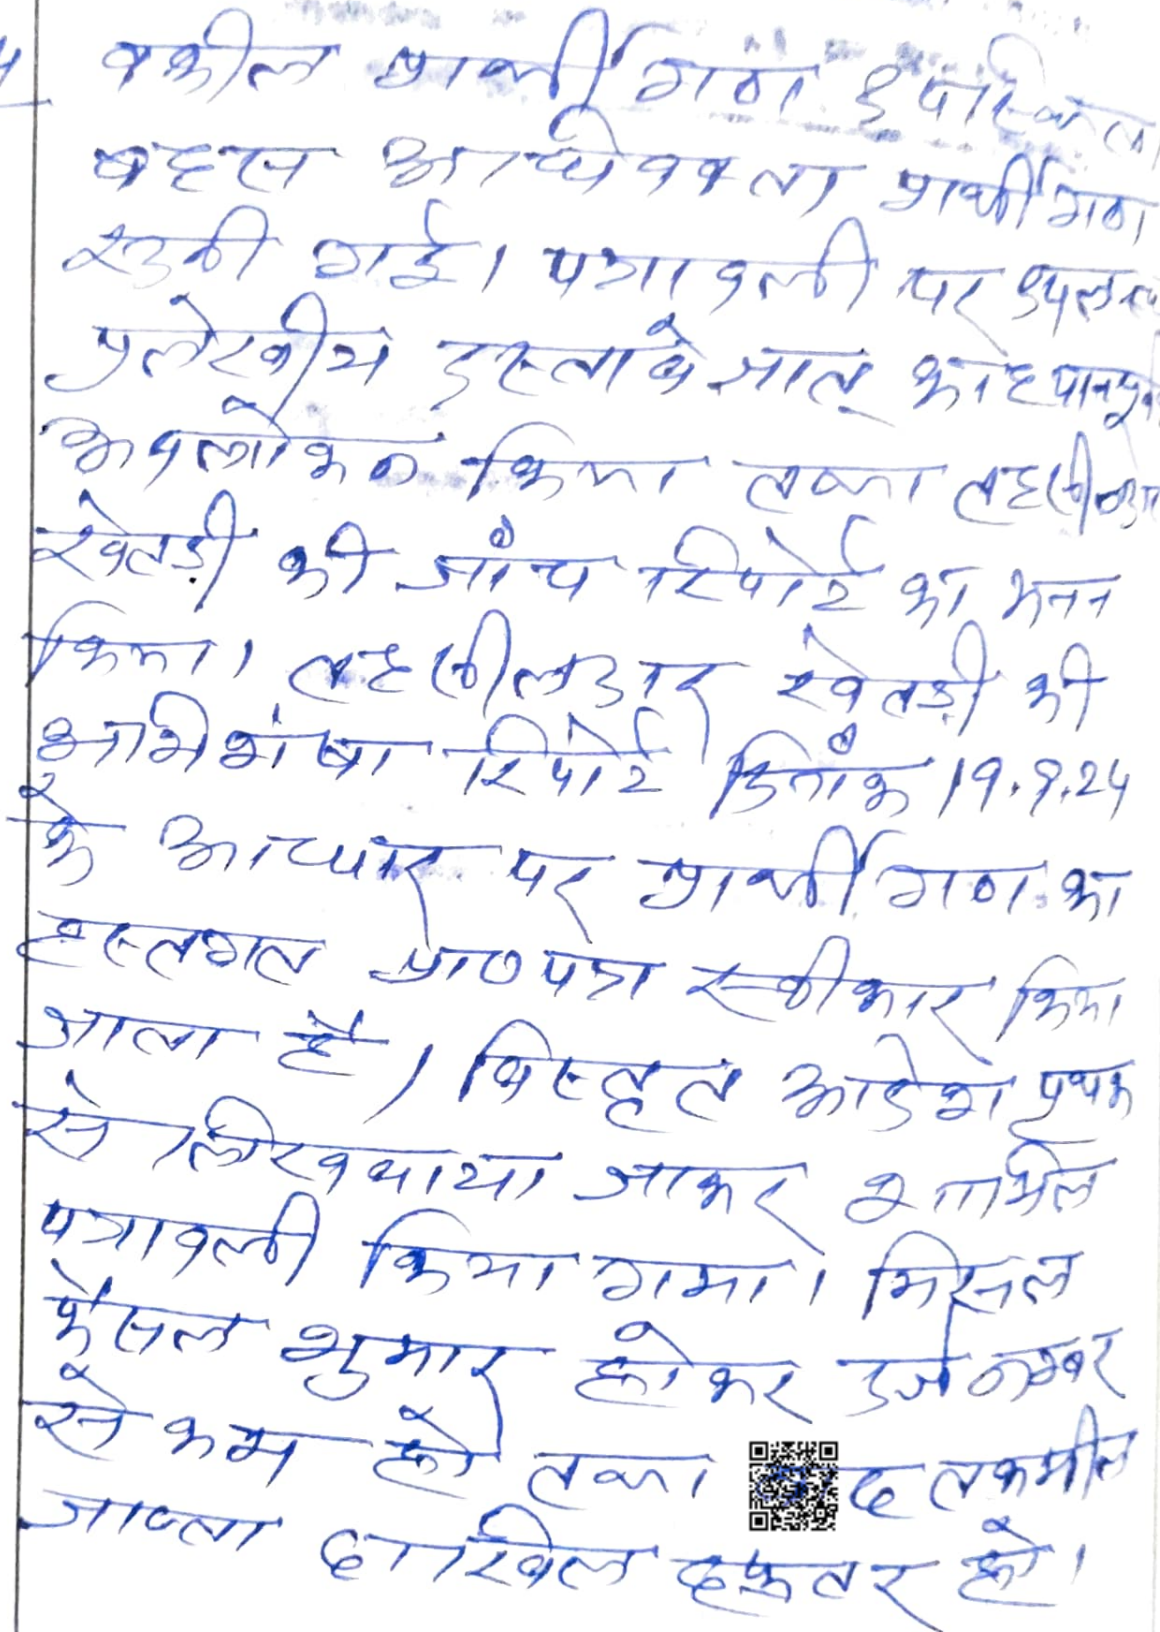 वकील प्रार्थीगण उपस्थित।
बहस अधिवक्ता प्रार्थीगण
सुनी गई। पत्रावली पर उपलब्ध
प्रलेखीय दस्तावेजात् का ध्यानपूर्वक
अवलोकन किया तथा तहसीलदार
खेतड़ी की जांच रिपोर्ट का मनन
किया। तहसीलदार खेतड़ी की
अभिशंषा रिपोर्ट दिनांक 19.9.24
के आधार पर प्रार्थीगण का
हस्तगत प्रा०पत्र स्वीकार किया
जाता है। विस्तृत आदेश पृथक
से लिखवाया जाकर शामिल
पत्रावली किया गया। मिसल
फैसल शुमार होकर दर्ज नम्बर
से कम हो तथा बाद तकमील
जाब्ता दाखिल दफ्तर हो।